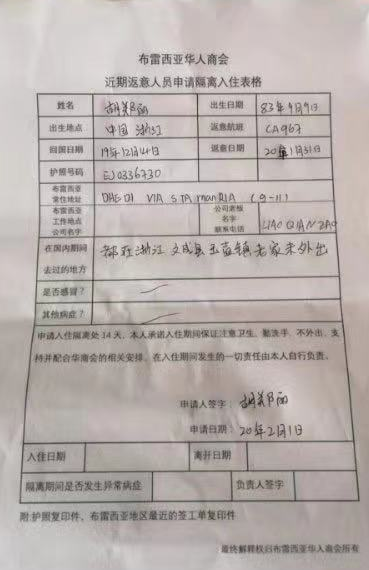 布雷西亚华人商会
近期返意人员申请隔离入住表格
姓名 胡郑丽 出生日期 83年9月9日
出生地点 中国 浙江 返意航班 CA967
回国日期 19年12月14日 返意日期 20年1月31日
护照号码 EJ0336730
布雷西亚常住地址 VIA STA MARIA (9-11)
布雷西亚工作地点公司名字 公司老板名字联系电话
在国内期间去过的地方 都在浙江 文成县玉壶镇老家未外出
是否感冒?
其他病症?
申请入住隔离处 14 天,本人承诺入住期间保证注意卫生、勤洗手、不外出、支
持并配合华商会的相关安排。在入住期间发生的一切责任由本人自行负责。
申请人签字: 胡郑丽
申请日期: 20年2月1日
入住日期 离开日期
隔离期间是否发生异常病症 负责人签字
附:护照复印件、布雷西亚地区最近的签工单复印件
最终解释权归布雷西亚华人商会所有